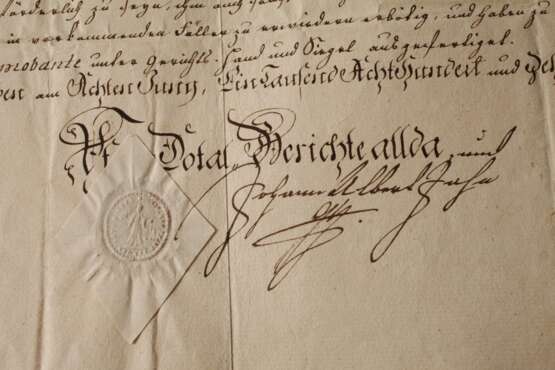 förderlich zu seyn, ihm auch
in vorkommenden Fällen zu erwiedern erbötig, und haben zu
probante unter Gerichts. Hand und Siegel ausgefertiget.
am Achten Juny, Ein Tausend Acht Hundert und
Dotal Gerichte allda, und
Johann Albert Jahn